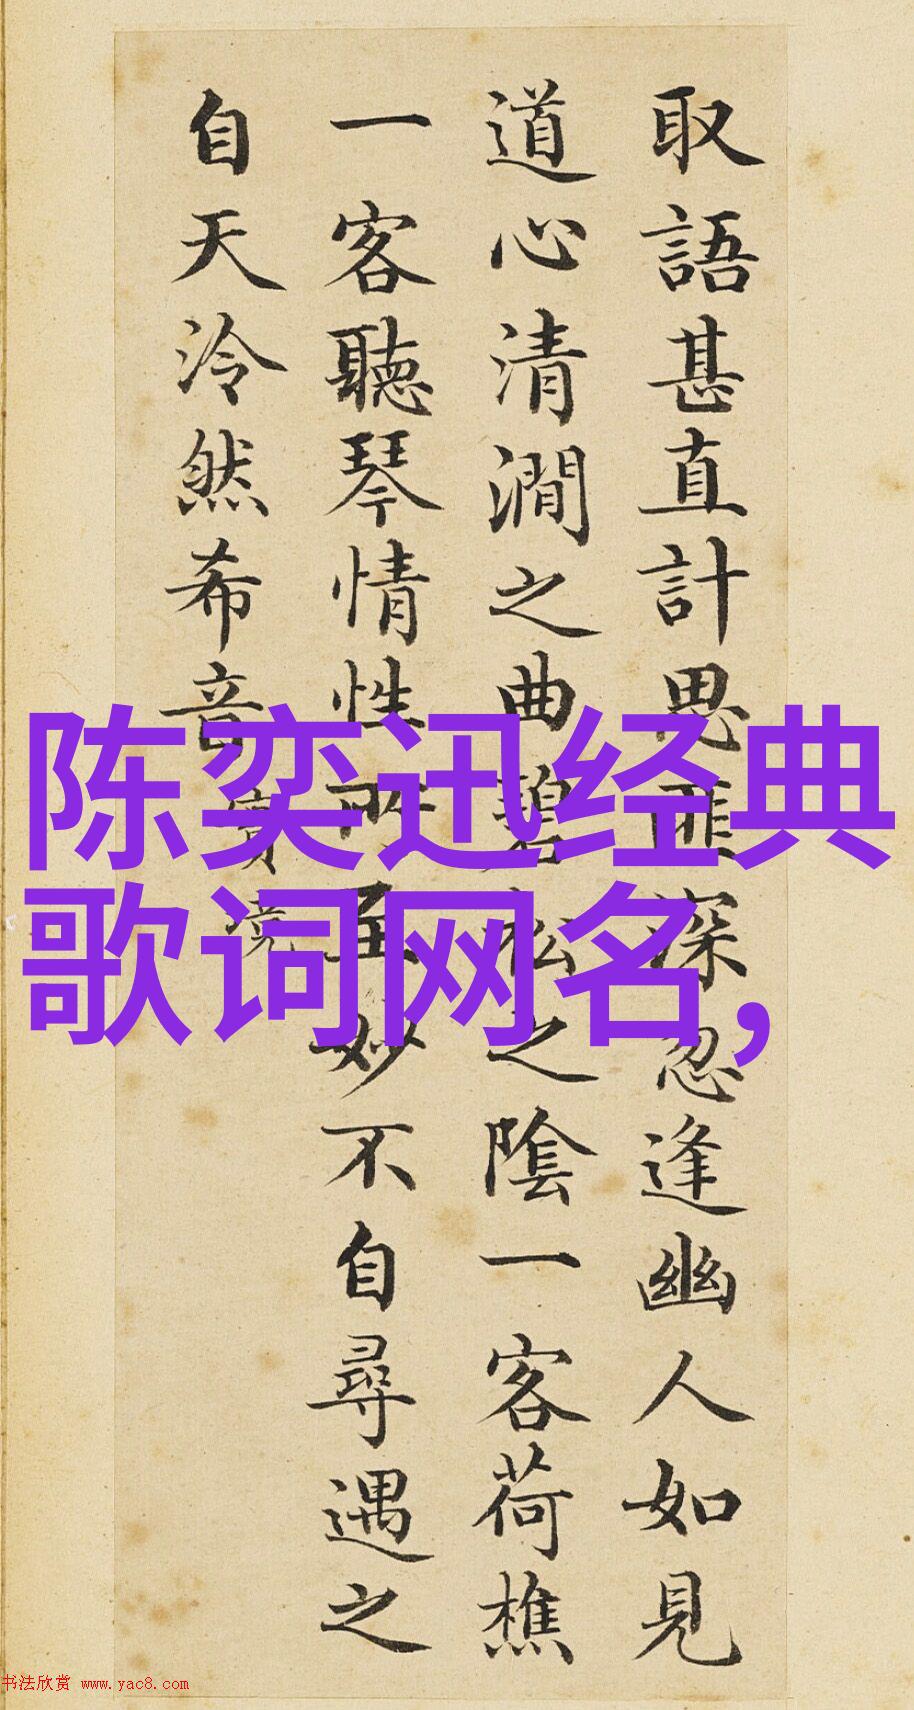 取語甚直計思匪深忽逢幽人如見
道心清澗之曲碧松之陰一客荷樵
一客聽琴情性所至妙不自尋遇之
自天泠然希音
陈奕迅经典
歌词网名,
书法欣赏 www.yac8.com